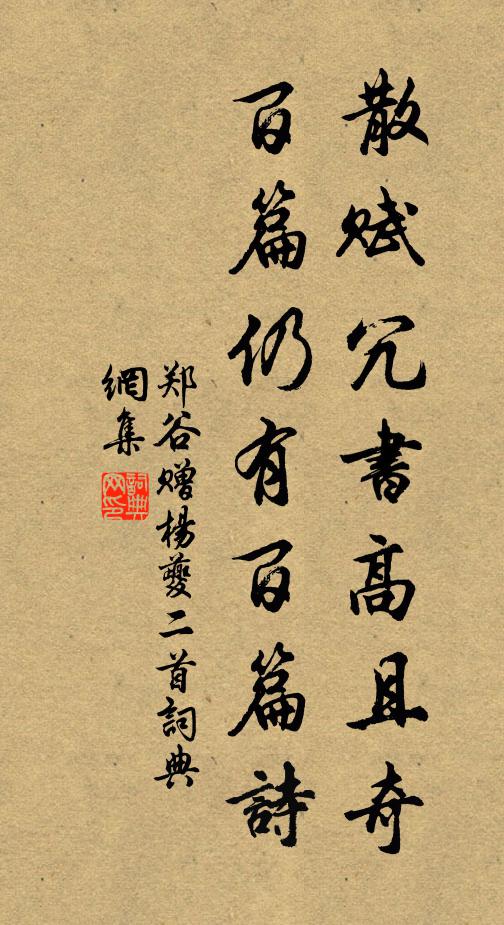 散赋冗書高且奇
百篇仍有百篇詩
郑谷赠楊夔二首詞典
網集
詞典網印